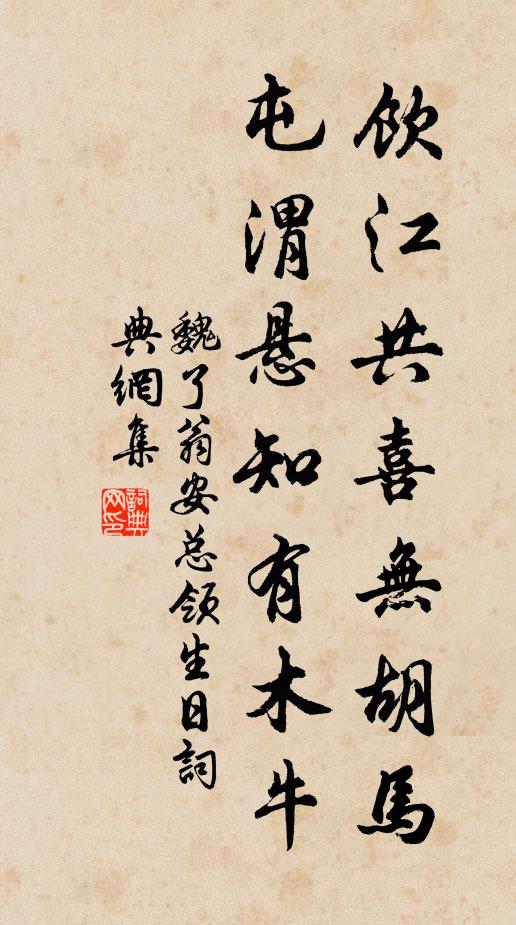 飲江共喜無胡馬
屯渭悬知有木牛
魏了翁安总领生日詞
典網集
詞典網印